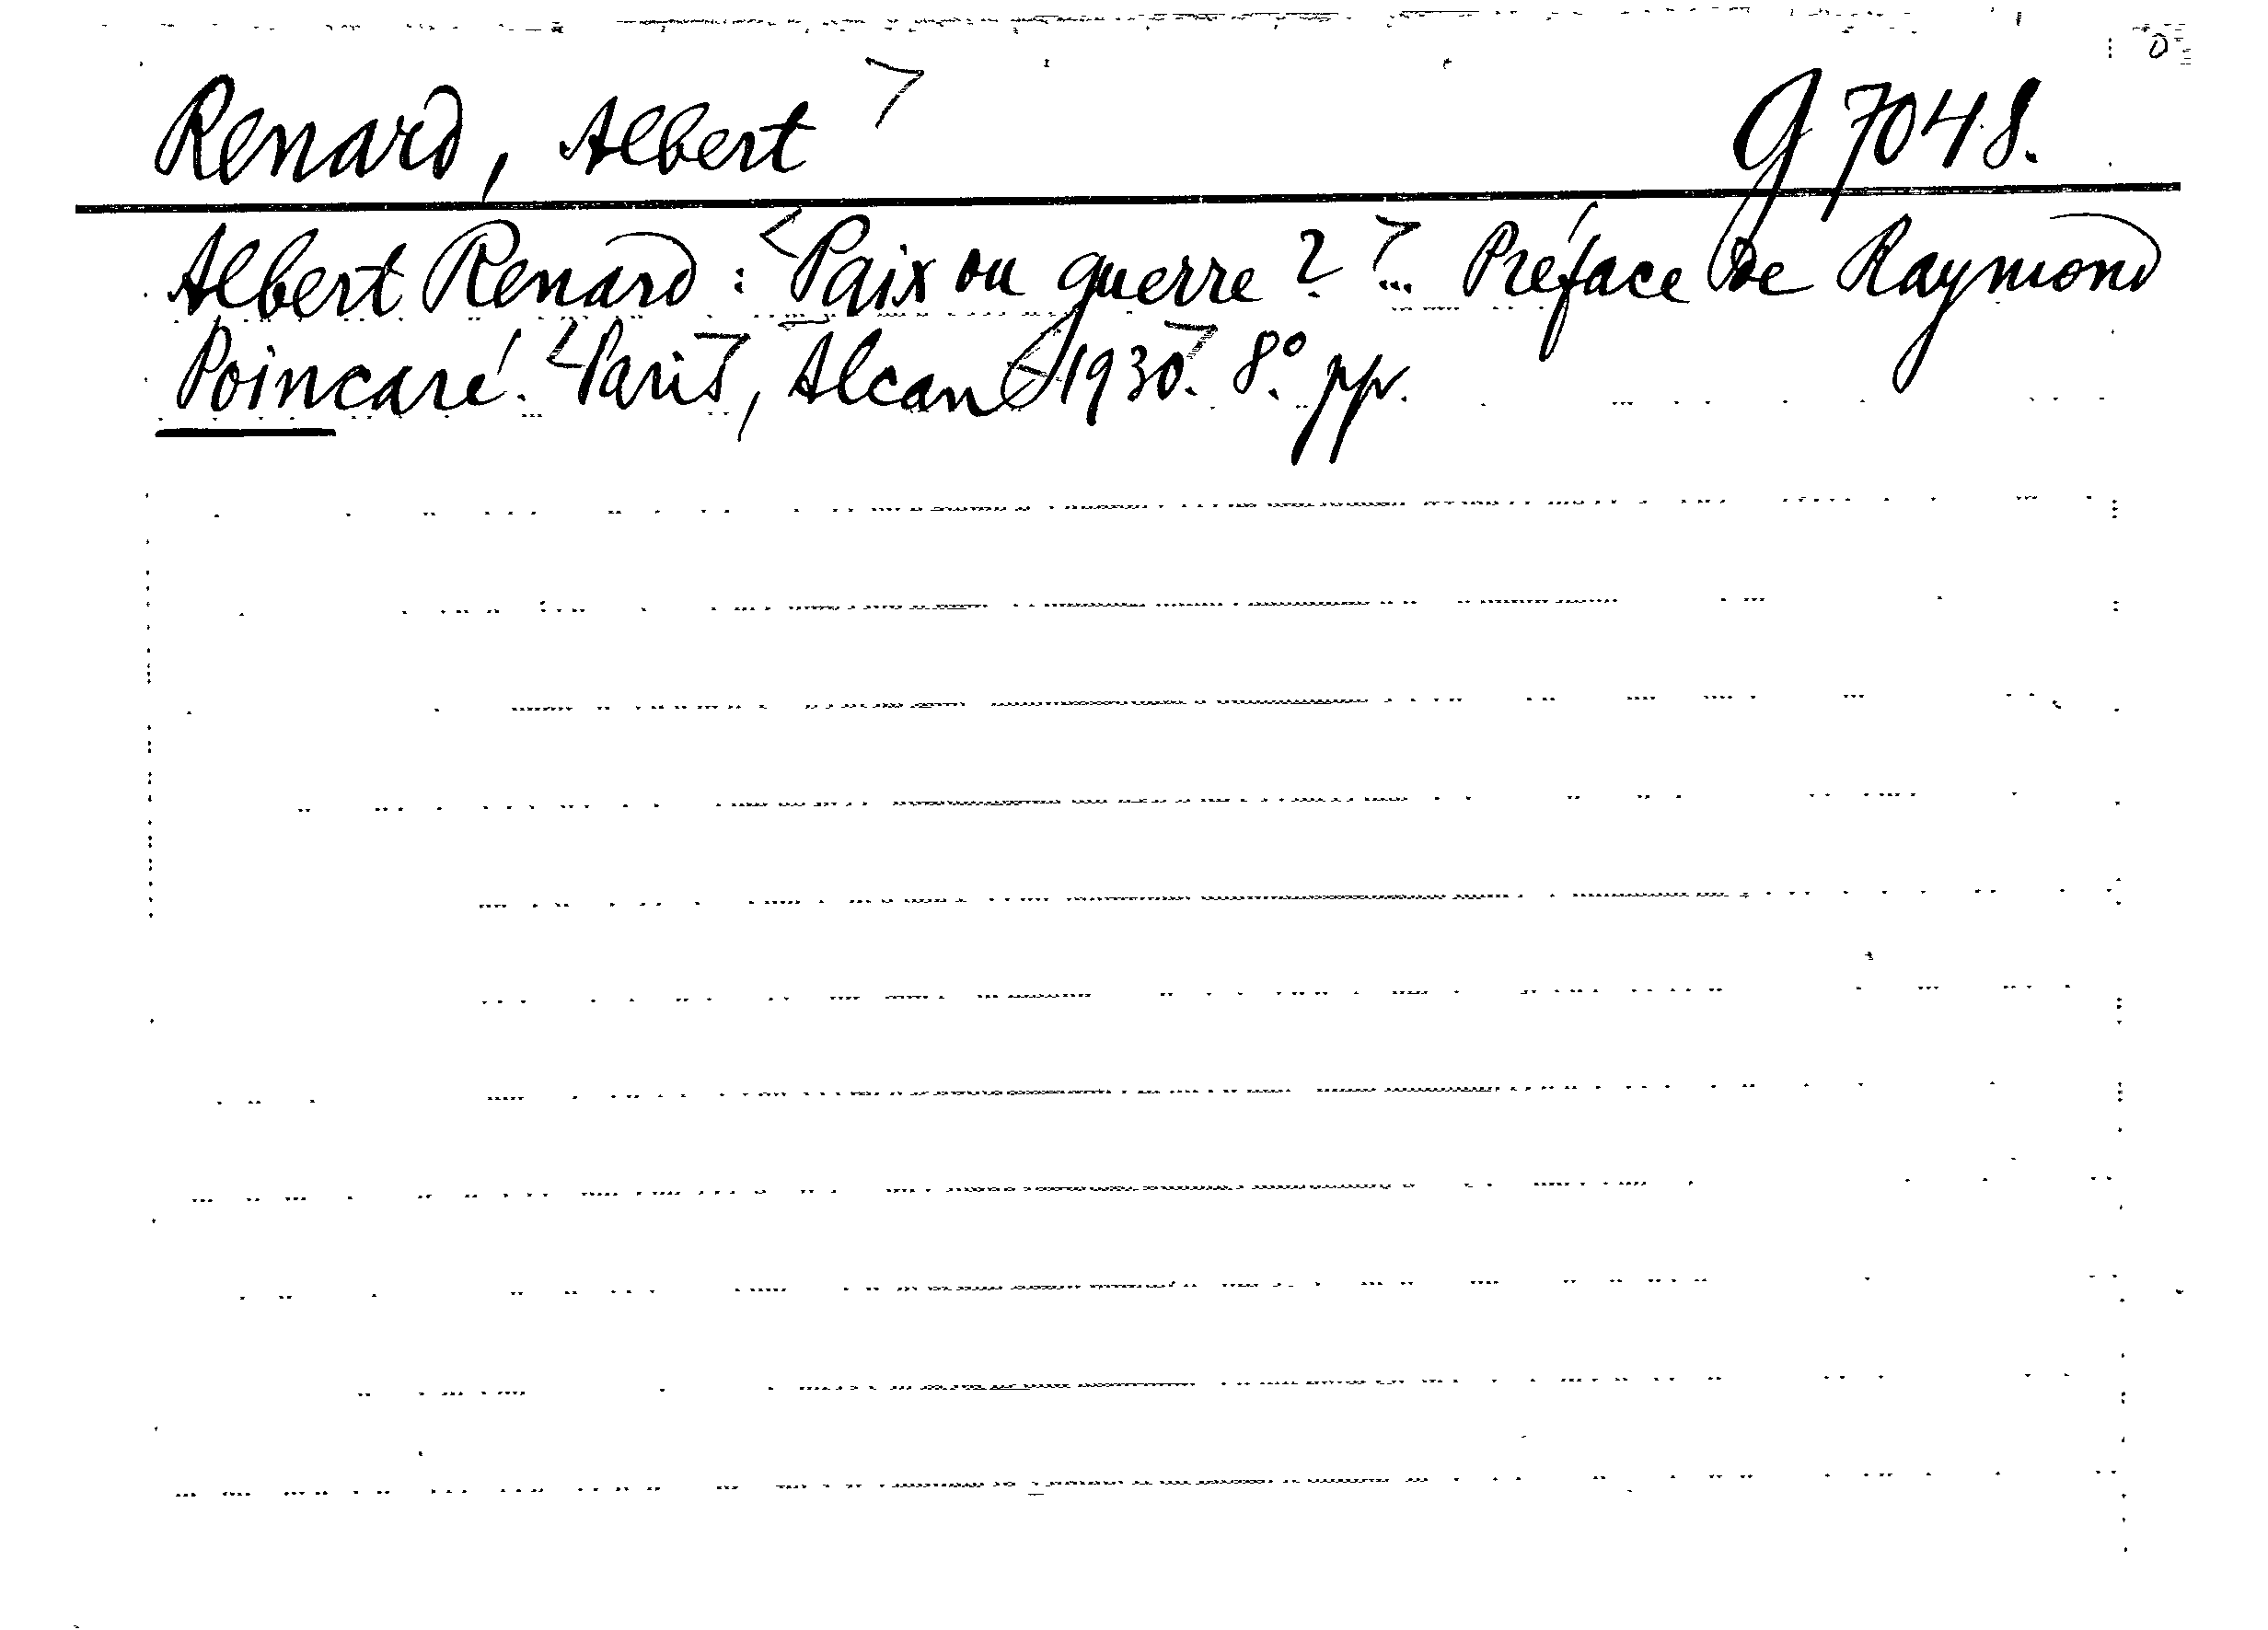 Renard, Albert G 7048.
Albert Renard: Paix ou guerre? ... Préface de Raymond
Poincaré. Paris, Alcan 1930. 8°. pp.